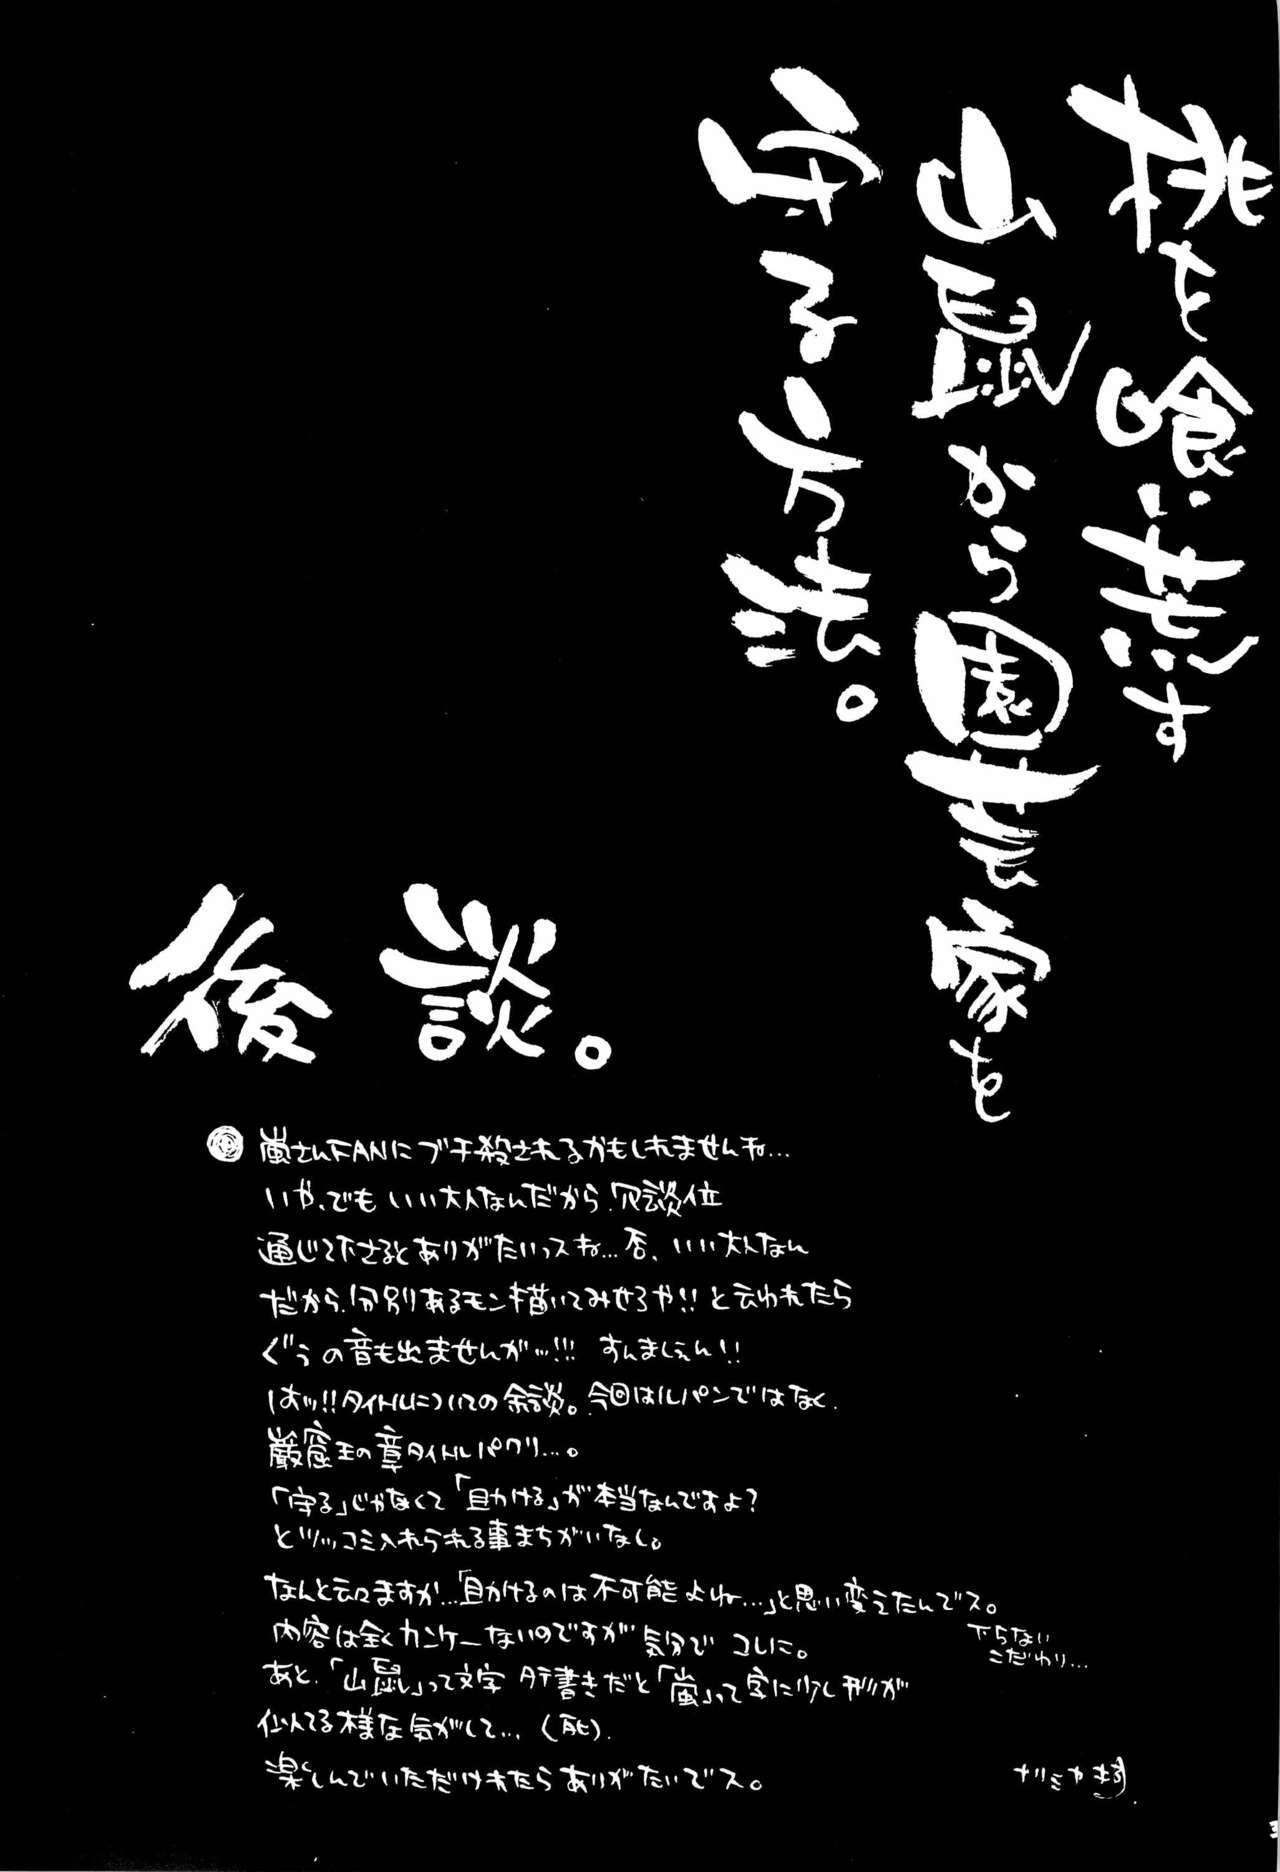 桃を喰い荒す
山鼠から園芸家を
守る方法。
後談。
嵐さんFANにブチ殺されるかもしれませんね…
いや、でもいい大人なんだから、冗談位
通じて下さるとありがたいっスね…否、いい大人なん
だから、分別あるモン描いてみせろや!!と云われたら
ぐうの音も出ませんがッ…!!! すんましぇん!!
はッ!!タイトルについての余談。今回はルパンではなく、
巌窟王の章タイトルパクリ…。
「守る」じゃなくて「助ける」が本当なんですよ?
とツッコミ入れられる事まちがいなし。
なんと云いますか…「助けるのは不可能よね…」と思い変えたんでス。
内容は全くカンケーないのですが気分でコレに。
下らない
こだわり…
あと、「山鼠」って文字タテ書きだと「嵐」って字に少し形が
似てる様な気がして…(死)。
楽しんでいただけれたらありがたいでス。
ナリミヤ